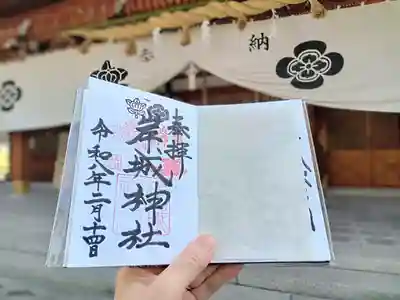 奉拝
岸城神社
令和八年二月十四日
納